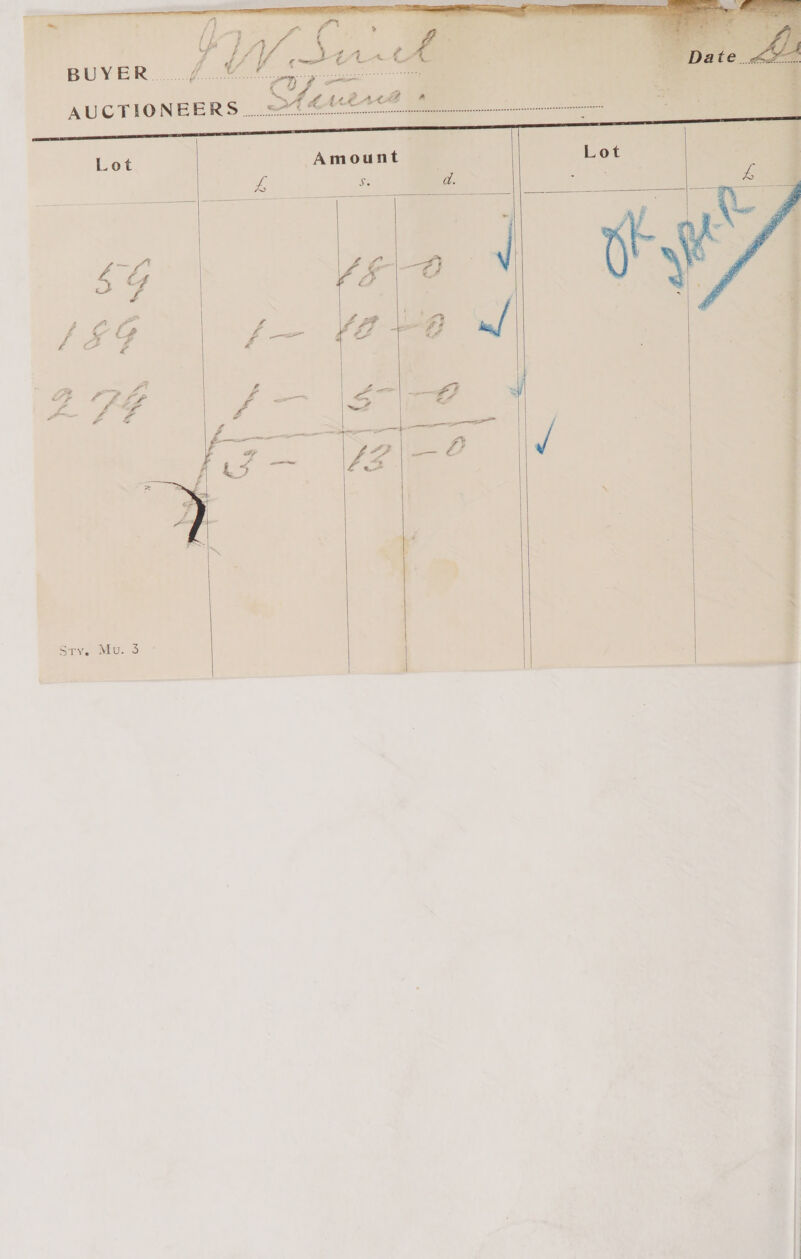 BUYER J W
Date De
AUCTIONEERS Stevens
Lot Amount Lot
£ s. d. £
59 18-0 OK
189 1-10-0
274 1-5-0
£3-13-0
Sty. Mu. 3